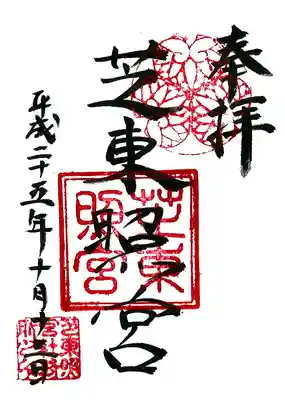 奉拝
芝東照宮
芝東
照宮
平成二十五年十月十三日